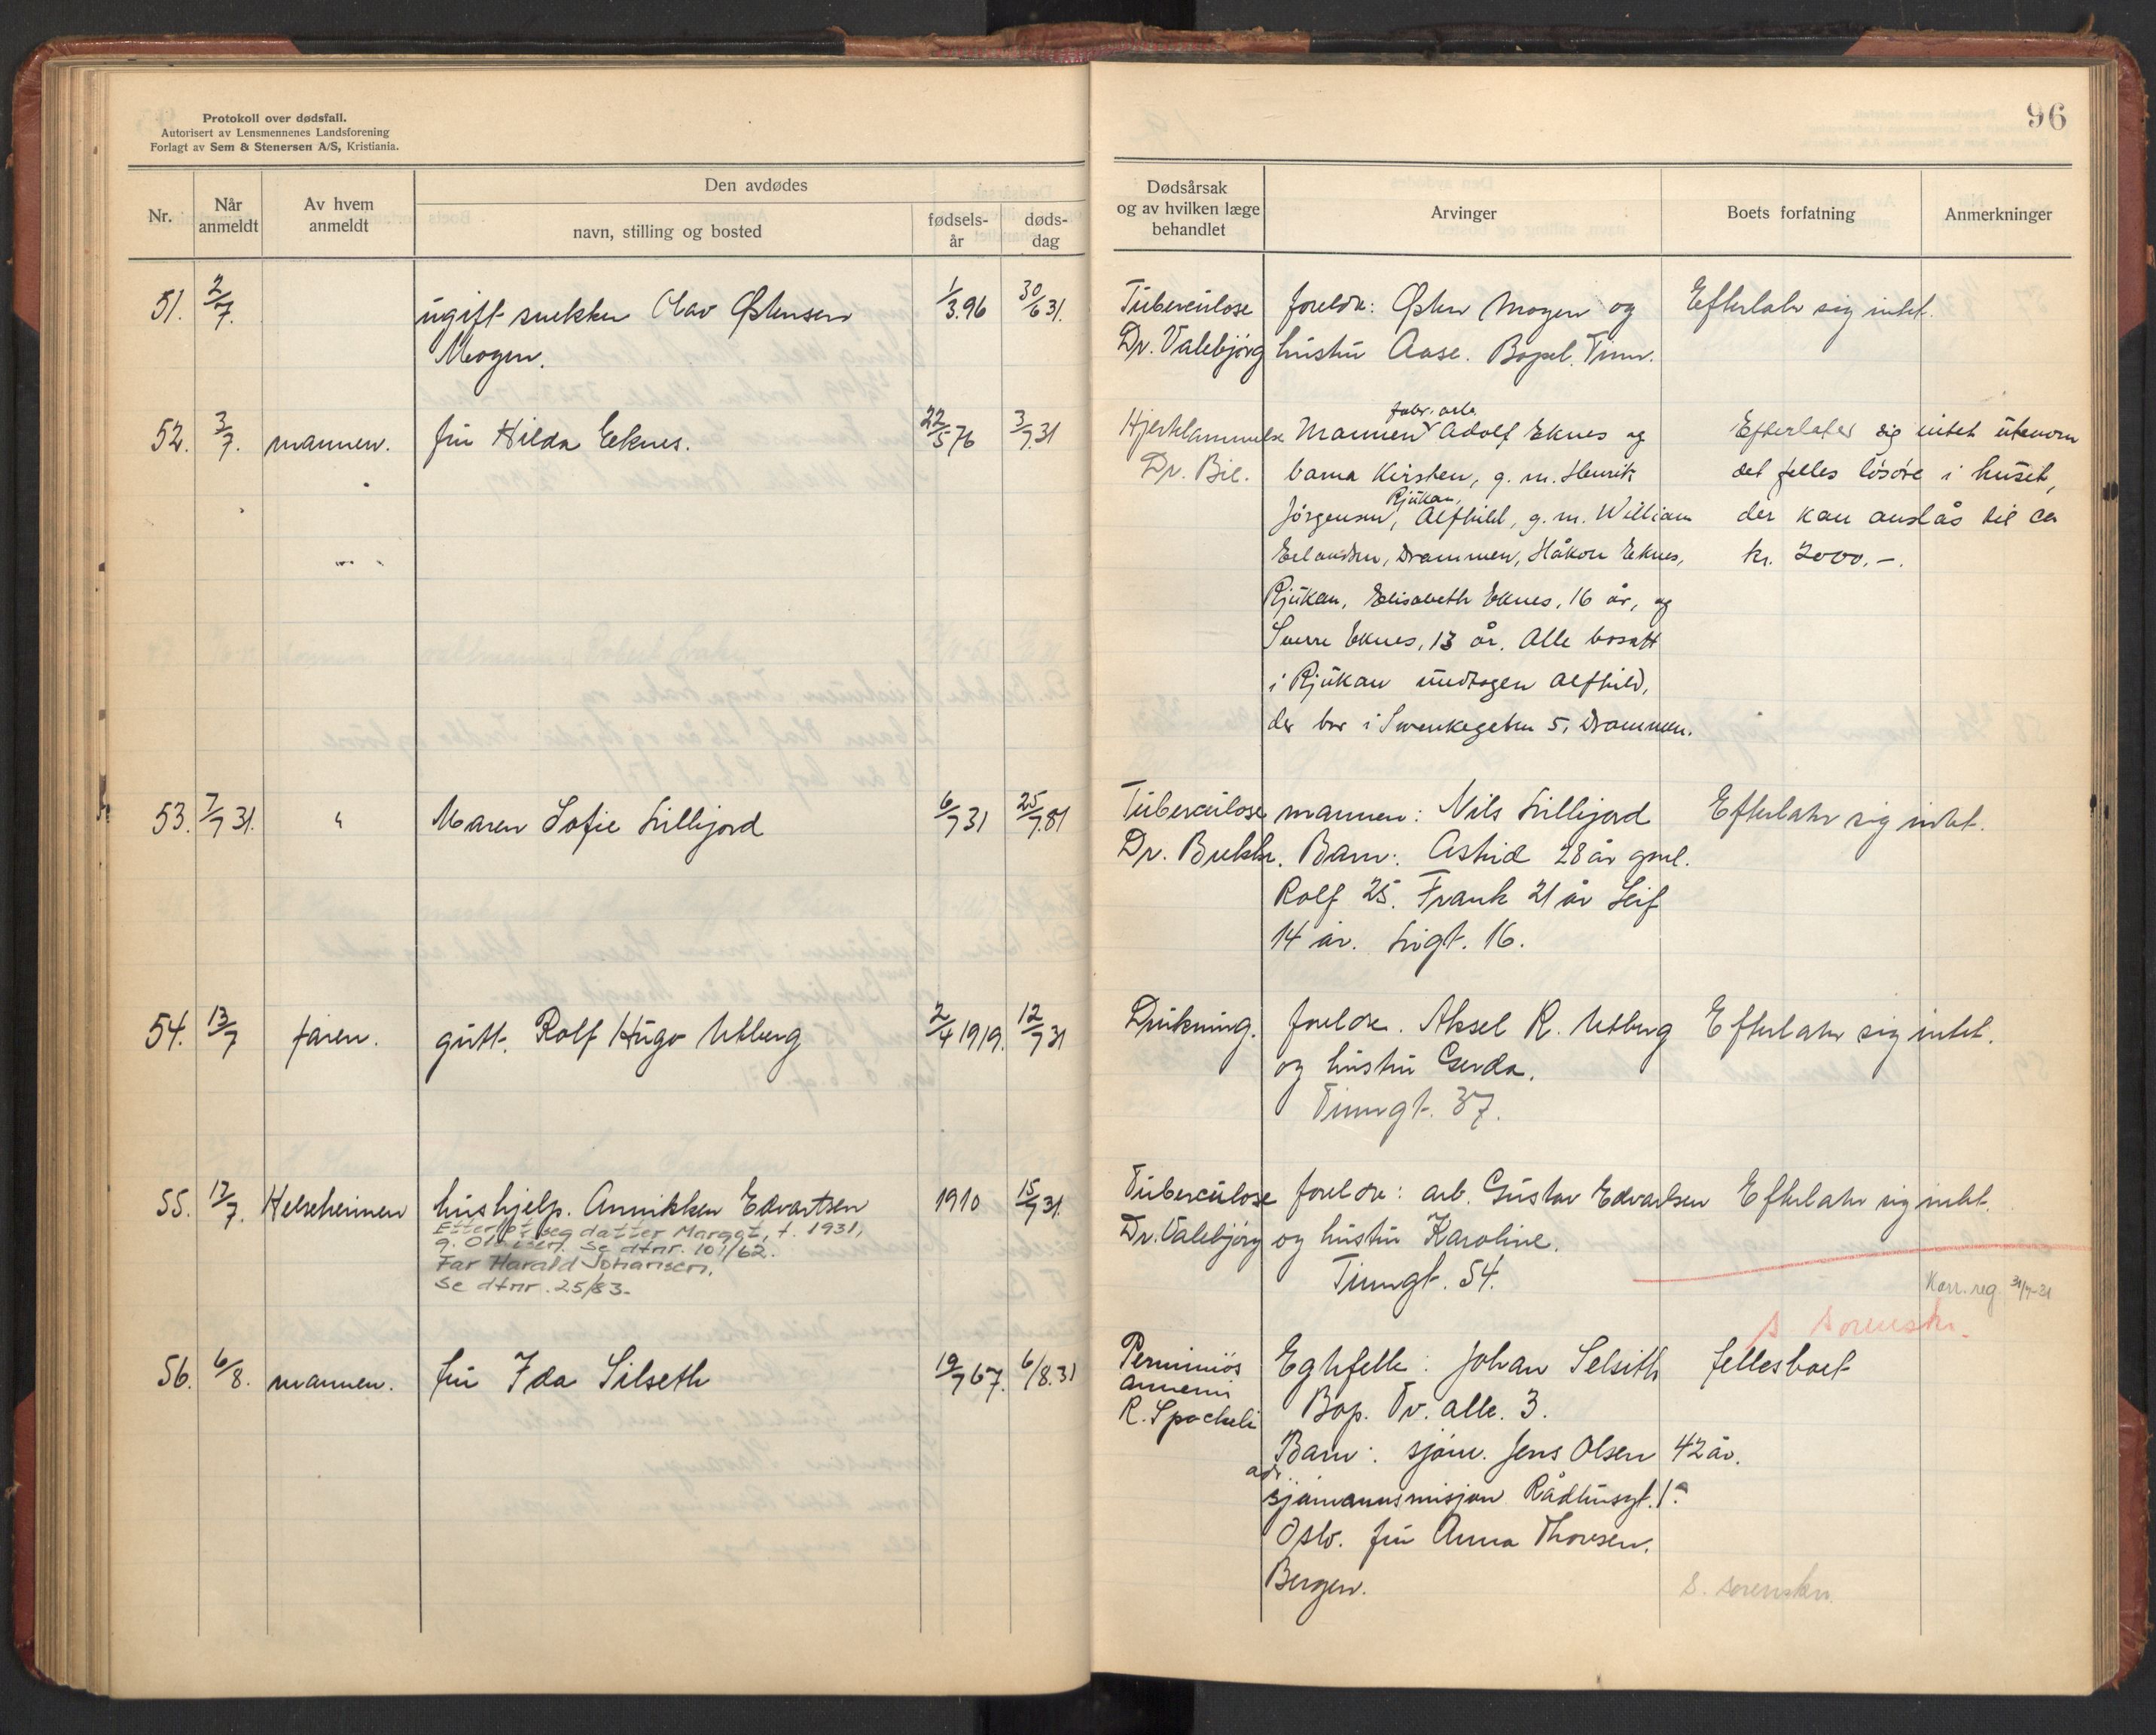 Protokoll over dødsfall.
Autorisert av Lensmennenes Landsforening
Forlagt av Sem & Stenersen A/S, Kristiania.
96
Nr.
Når anmeldt
Av hvem anmeldt
Den avdødes
navn, stilling og bosted
fødsels-år
døds-dag
Dødsårsak og av hvilken læge behandlet
Arvinger
Boets forfatning
Anmerkninger
51. 2/7. ugift snekker Olav Østensen 1/3.96 30/6 31. Tuberculose foreldre: Østen Mogen og Efterlater sig intet.
Mogen. Dr. Valebjørg hustru Aase. Bopel. Tinn.
52. 3/7. mannen. fru Hilda Eeknes. 22/5 76 3/7.31 Hjertelammelse Mannen fabr. arb. Adolf Eknes og Efterlater sig intet utenom
Dr. Bie. barna Kirsten, g. m. Henrik det felles løsøre i huset,
Jörgensen, Rjukan, Alfhild, g. m. William der kan anslås til ca
Erlandsen, Drammen, Håkon Eknes, kr. 2000.-.
Rjukan, Elisabeth Eknes, 16 år, og
Sverre Eknes, 13 år. Alle bosatt
i Rjukan undtagen Alfhild,
der bor i Svenskegaten 5, Drammen.
53. 7/7 31. " Maren Sofie Lillijord 6/7 31 25/7.81 Tuberculose mannen: Nils Lillijord Efterlater sig intet.
Dr. Bukkr. Barn: Astrid 28 år gml.
Rolf 25. Frank 21 år Leif
14 år. Sigt. 16.
54. 13/7 faren. gutt. Rolf Hugo Utberg 2/4 1919. 12/7 31 Drukning. foreldre. Aksel R. Utberg Efterlater sig intet.
og hustru Gerda.
Tinngt. 37.
55. 17/7. Helseheimen hushjelp. Annikken Edvartsen 1910 15/7 31. Tuberculose foreldre: arb. Gustav Edvartsen Efterlater sig intet.
Etterlot seg datter Margot, f. 1931, Dr. Valebjørg og hustru Karoline.
g. se dfnr. 101/62. Tinngt. 54.
Far Harald Johansen,
se dfnr. 25/83.
Kon. reg. 31/7-31
s sorenskr.
56. 6/8. mannen. fru Ida Silseth 19/7 67. 6/8.31 Perniciøs Ektefelle: Johan Selseth fellesboet
anemi Bop. Tv. alle. 3.
R. Spockeli Barn: sjøm. Jens Olsen 42 år.
adr. sjømannsmisjon Rådhusgt. 1.
Oslo. fru Anna Thorsen.
Bergen. s. sorenskr.